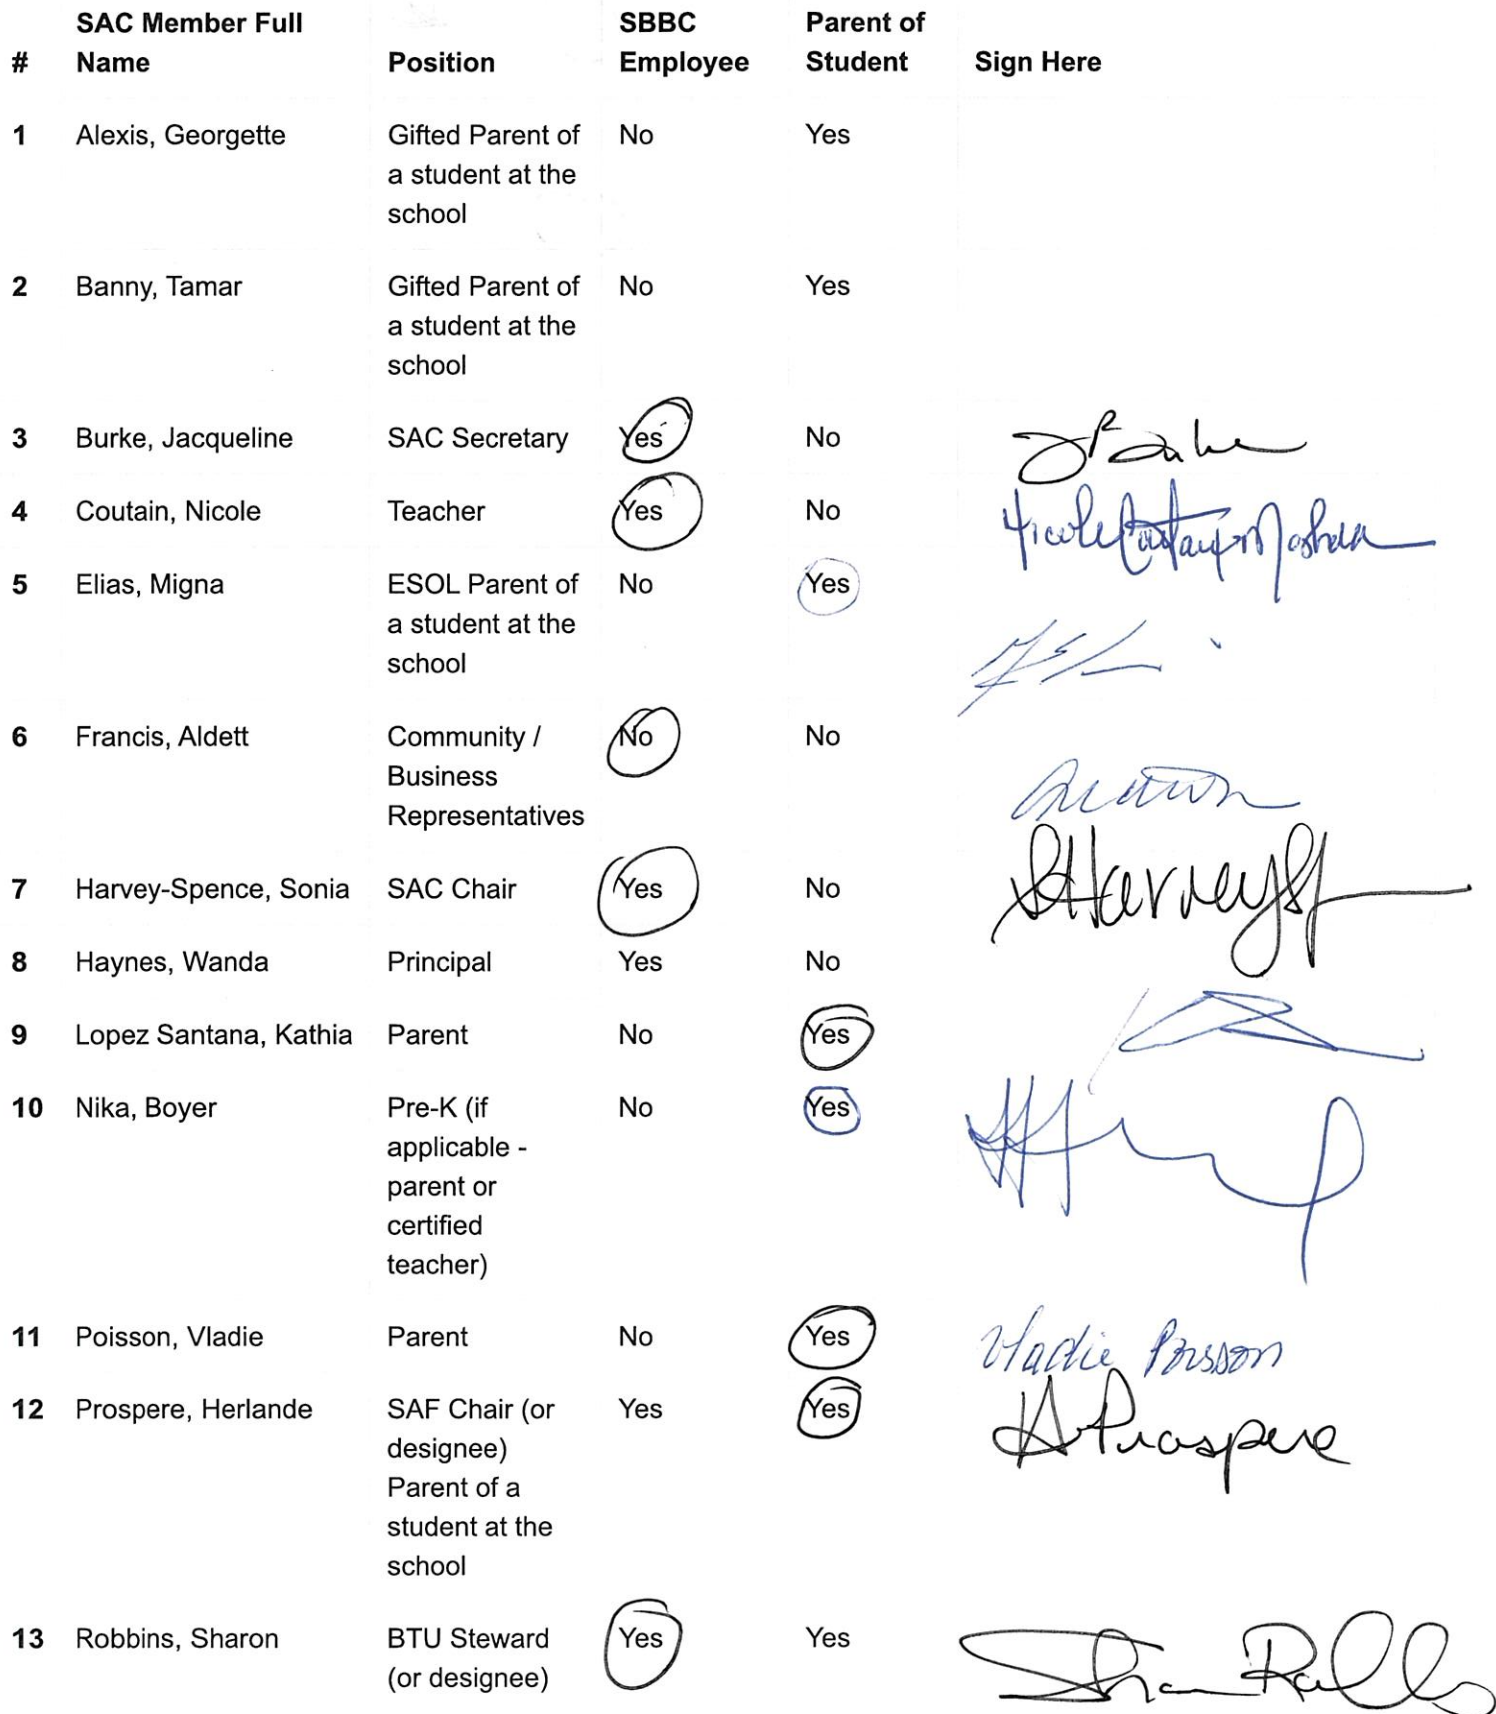 # SAC Member Full Name Position SBBC Employee Parent of Student Sign Here
1 Alexis, Georgette Gifted Parent of No Yes
a student at the
school
2 Banny, Tamar Gifted Parent of No Yes
a student at the
school
3 Burke, Jacqueline SAC Secretary Yes No
4 Coutain, Nicole Teacher Yes No Nicole
5 Elias, Migna ESOL Parent of No Yes
a student at the
school
6 Francis, Aldett Community / No No
Business
Representatives
7 Harvey-Spence, Sonia SAC Chair Yes No
8 Haynes, Wanda Principal Yes No
9 Lopez Santana, Kathia Parent No Yes
10 Nika, Boyer Pre-K (if No Yes
applicable -
parent or
certified
teacher)
11 Poisson, Vladie Parent No Yes Vladie Poisson
12 Prospere, Herlande SAF Chair (or Yes Yes H Prospere
designee)
Parent of a
student at the
school
13 Robbins, Sharon BTU Steward Yes Yes Sharon
(or designee)